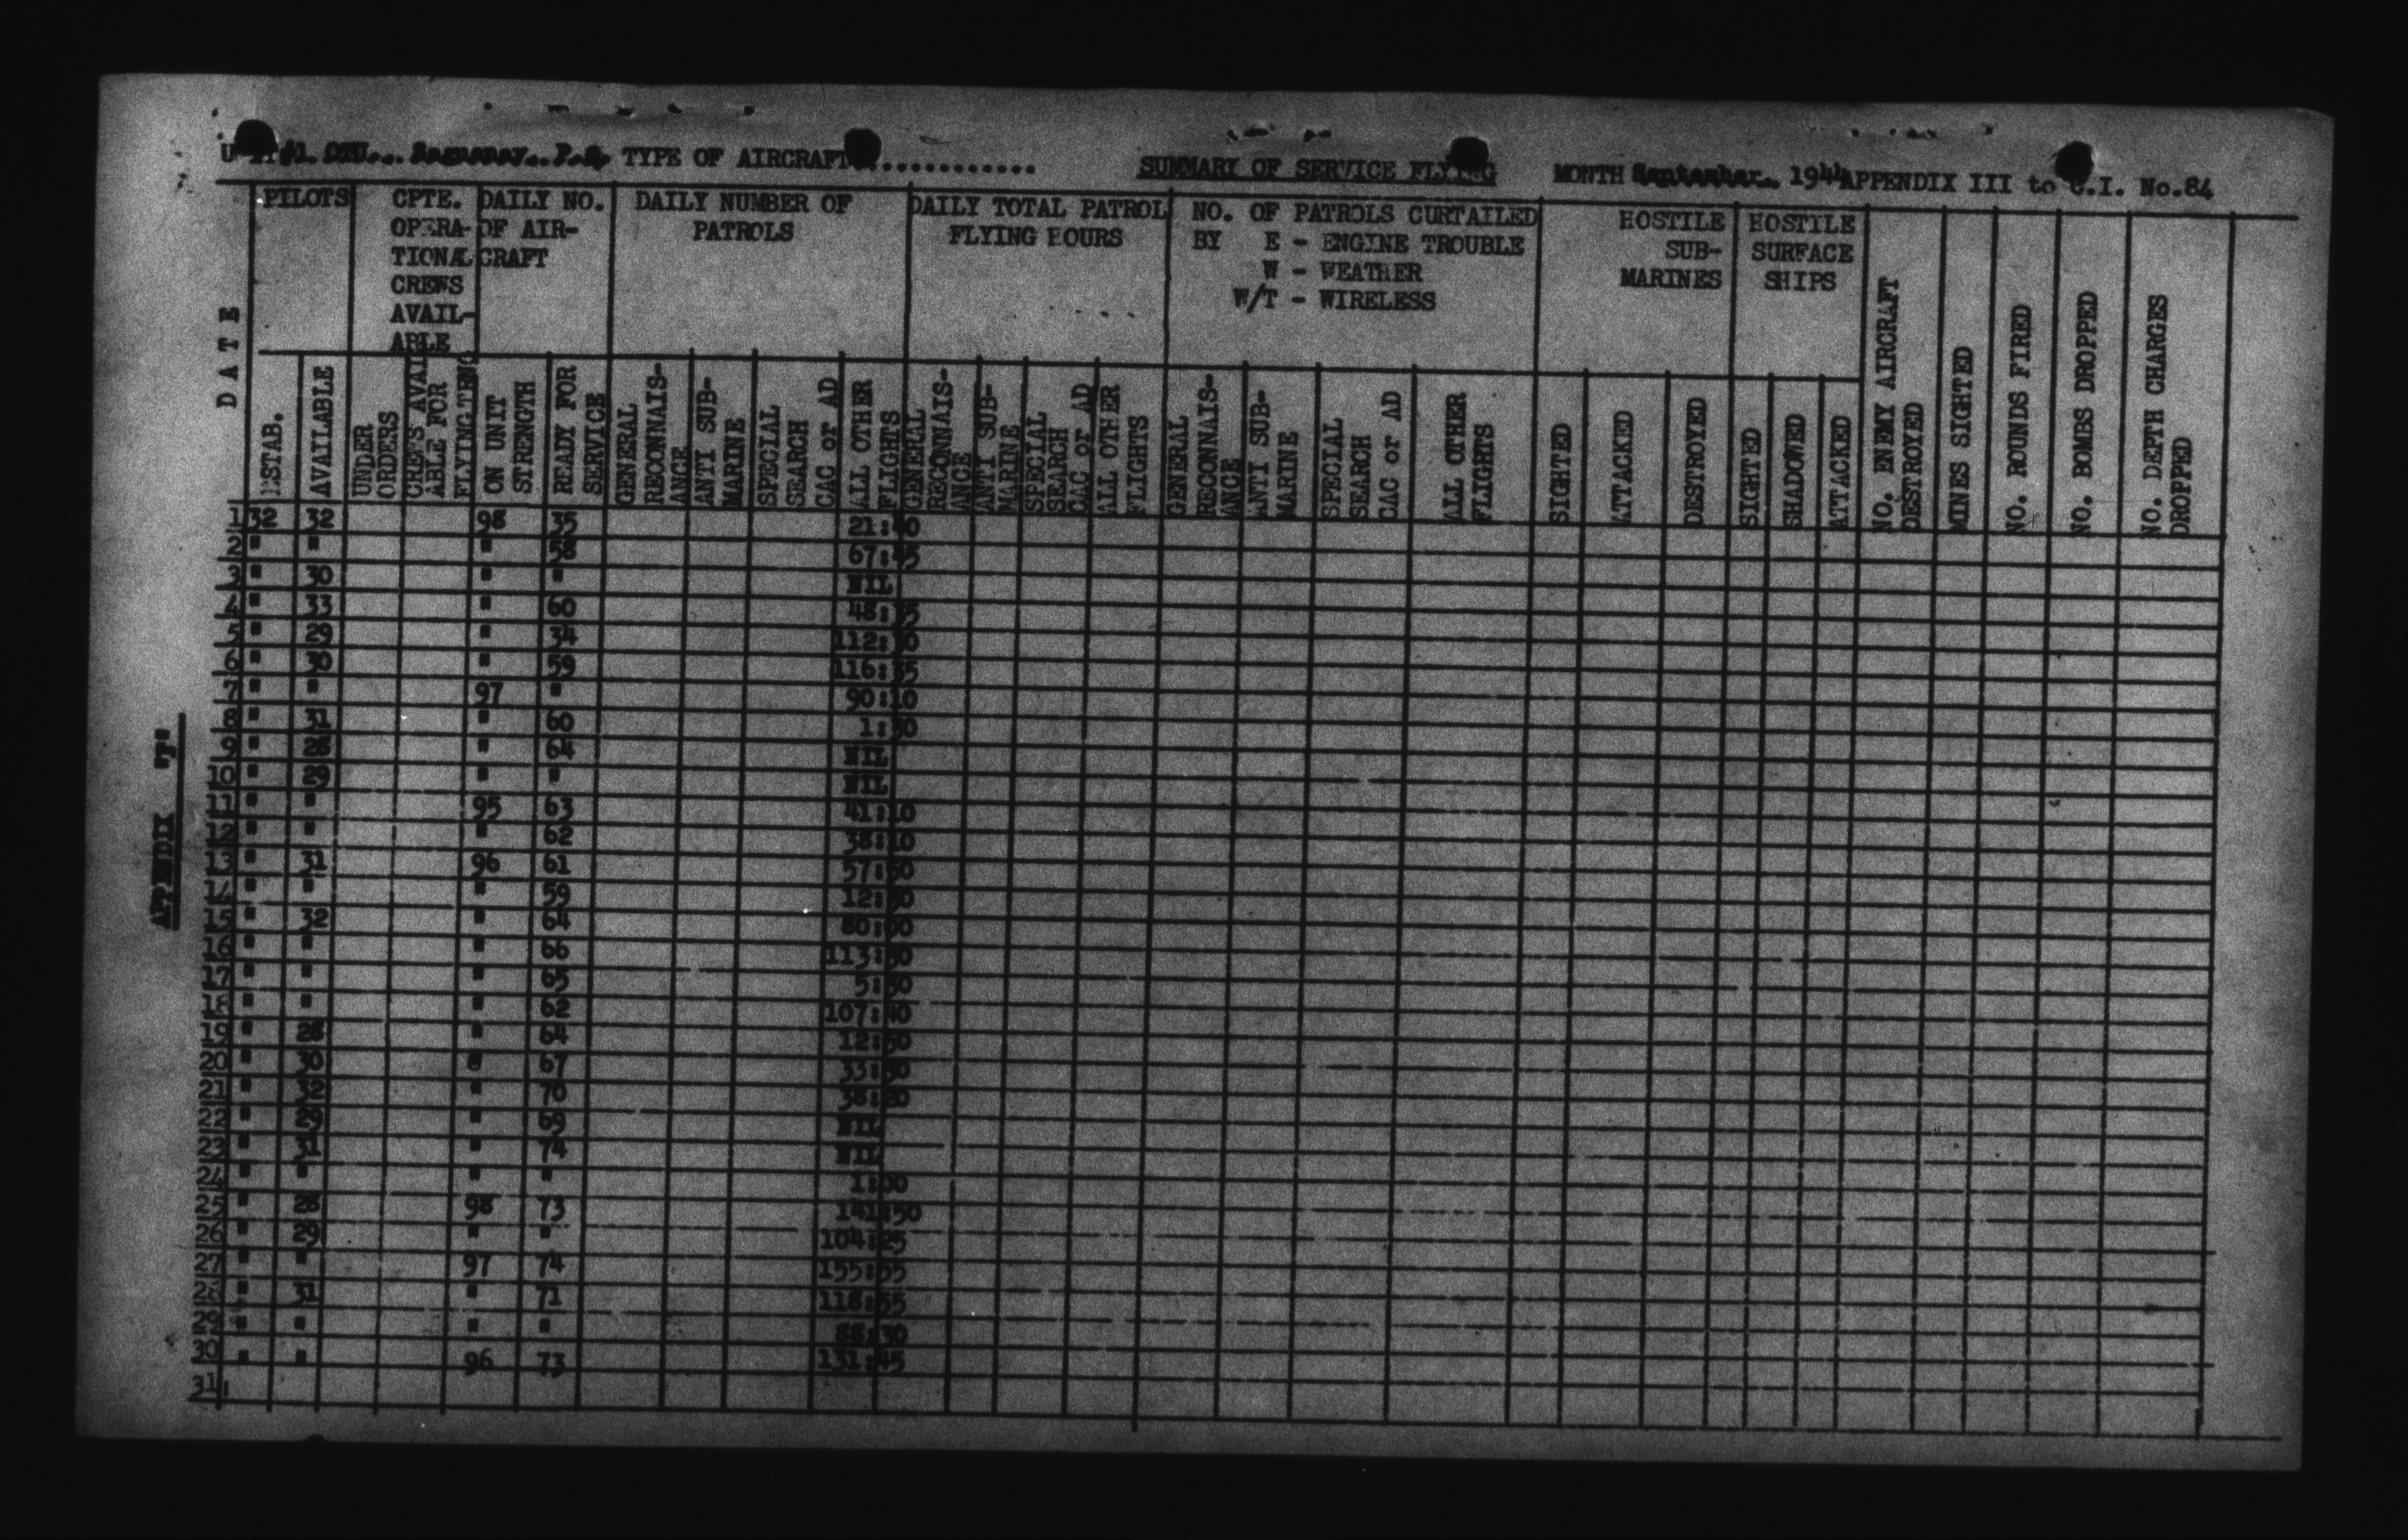 #1 OTU.. Saguenay. P.Q. TYPE OF AIRCRAFT............ SUMMARY OF SERVICE FLYING MONTH September.. 1944 APPENDIX III to C.I. No.84
DATE
PILOTS
CPTE. OPERA- TIONAL CREWS AVAIL- ABLE
DAILY NO. OF AIR- CRAFT
DAILY NUMBER OF PATROLS
DAILY TOTAL PATROL FLYING HOURS
NO. OF PATROLS CURTAILED
BY E - ENGINE TROUBLE
W - WEATHER
W/T - WIRELESS
HOSTILE SUB- MARINES
HOSTILE SURFACE SHIPS
NO. ENEMY AIRCRAFT DESTROYED
MINES SIGHTED
NO. ROUNDS FIRED
NO. BOMBS DROPPED
NO. DEPTH CHARGES DROPPED
ESTAB.
AVAILABLE
UNDER ORDERS
CREWS AVAIL ABLE FOR FLYING
ON UNIT STRENGTH
READY FOR SERVICE
GENERAL RECONNAIS- ANCE
ANTI SUB- MARINE
SPECIAL SEARCH CAC or AD
ALL OTHER FLIGHTS
GENERAL RECONNAIS- ANCE
ANTI SUB- MARINE
SPECIAL SEARCH CAC or AD
ALL OTHER FLIGHTS
GENERAL RECONNAIS- ANCE
ANTI SUB- MARINE
SPECIAL SEARCH CAC or AD
ALL OTHER FLIGHTS
SIGHTED
ATTACKED
DESTROYED
SIGHTED
SHADOWED
ATTACKED
1 32 32 98 35 21:40
2 " " " 58 67:45
3 " 30 " " NIL
4 " 33 " 60
5 " 29 " 34
6 " 30 " 59
7 " " 97 " 90:10
8 " 31 " 60
9 " 28 " 64 NIL
10 " 29 " " NIL
11 " " 95 63 41:10
12 " " " 62 38:10
13 " 31 96 61
14 " " " 59
15 " 32 " 64 80:00
16 " " " 66
17 " " " 65
18 " " " 62 107:40
19 " 28 " 64
20 " 30 " 67
21 " 32 " 70 38:20
22 " 29 " 69 NIL
23 " 31 " 74 NIL
24 " " " " 1:00
25 " 28 98 73 141:50
26 " 29 " " 104:25
27 " " 97 74 155:55
28 " 31 " 71 118:55
29 " " " " 88:30
30 " " 96 73 131:45
31
APPENDIX "J"